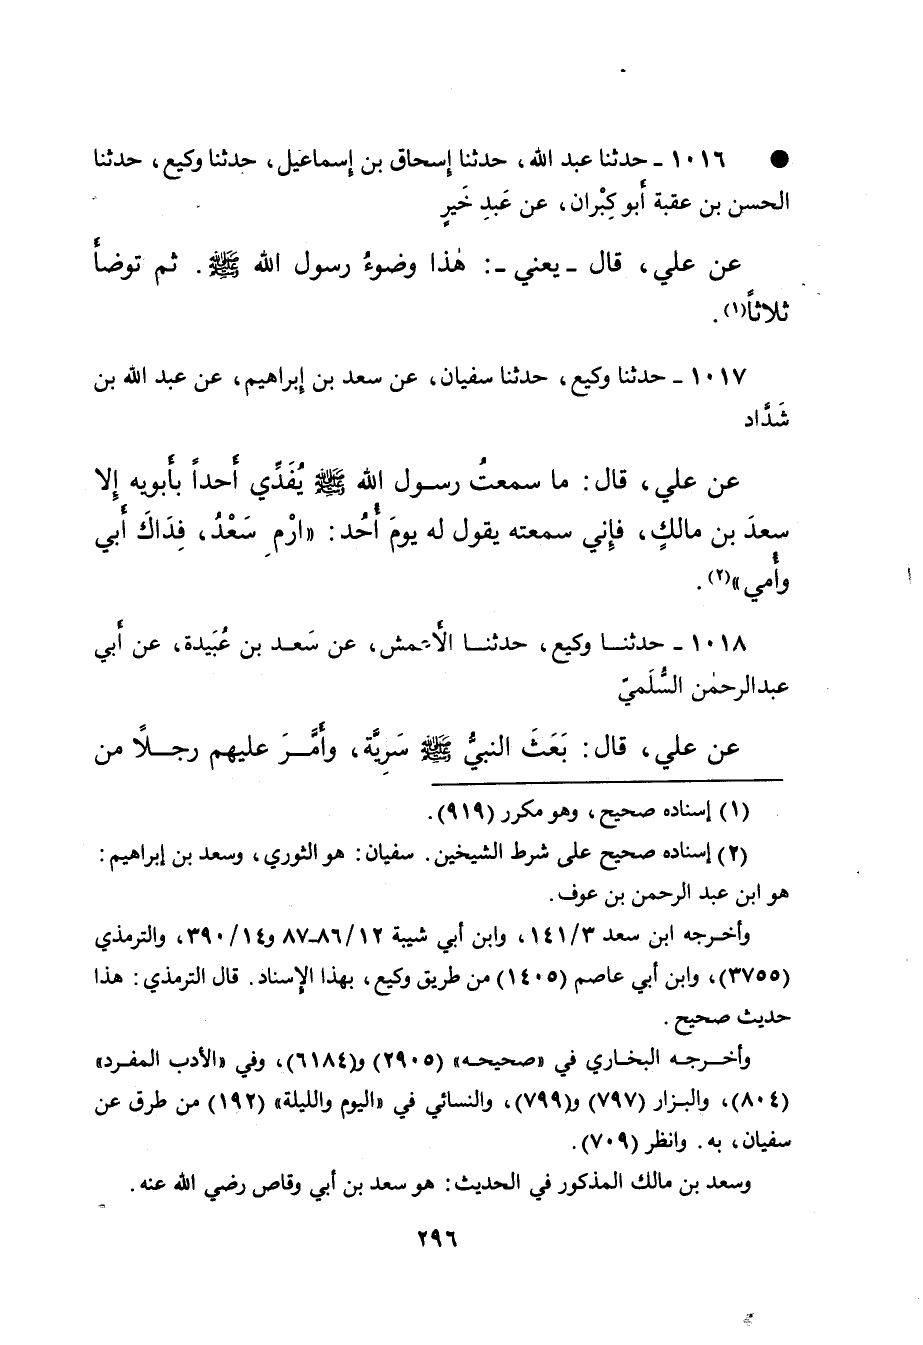 ● ١٠١٦ ـ حدثنا عبد الله، حدثنا إسحاق بن إسماعيل، حدثنا وكيع، حدثنا
الحسن بن عقبة أبو كِبْران، عن عَبدِ خَيرٍ
عن علي، قال ـ يعني ـ: هٰذا وضوءُ رسول الله ﷺ. ثم توضأَ
ثلاثاً(١).
١٠١٧ ـ حدثنا وكيع، حدثنا سفيان، عن سعد بن إبراهيم، عن عبد الله بن
شَدَّاد
عن علي، قال: ما سمعتُ رسول الله ﷺ يُفَدِّي أَحداً بأَبويه إلا
سعدَ بن مالكٍ، فإني سمعته يقول له يومَ أُحُد: «ارْمِ سَعْدُ، فِدَاكَ أَبي
وأُمي»(٢).
١٠١٨ ـ حدثنا وكيع، حدثنا الأَعمش، عن سَعد بن عُبَيدة، عن أَبي
عبدالرحمٰن السُّلَميّ
عن علي، قال: بَعَثَ النبيُّ ﷺ سَرِيَّة، وأَمَّرَ عليهم رجلاً من
(١) إسناده صحيح، وهو مكرر (٩١٩).
(٢) إسناده صحيح على شرط الشيخين. سفيان: هو الثوري، وسعد بن إبراهيم:
هو ابن عبد الرحمن بن عوف.
وأخرجه ابن سعد ١٤١/٣، وابن أبي شيبة ٨٦/١٢ـ٨٧ و٣٩٠/١٤، والترمذي
(٣٧٥٥)، وابن أبي عاصم (١٤٠٥) من طريق وكيع، بهذا الإسناد. قال الترمذي: هذا
حديث صحيح.
وأخرجه البخاري في «صحيحه» (٢٩٠٥) و(٦١٨٤)، وفي «الأدب المفرد»
(٨٠٤)، والبزار (٧٩٧) و(٧٩٩)، والنسائي في «اليوم والليلة» (١٩٢) من طرق عن
سفيان، به. وانظر (٧٠٩).
وسعد بن مالك المذكور في الحديث: هو سعد بن أبي وقاص رضي الله عنه.
٢٩٦